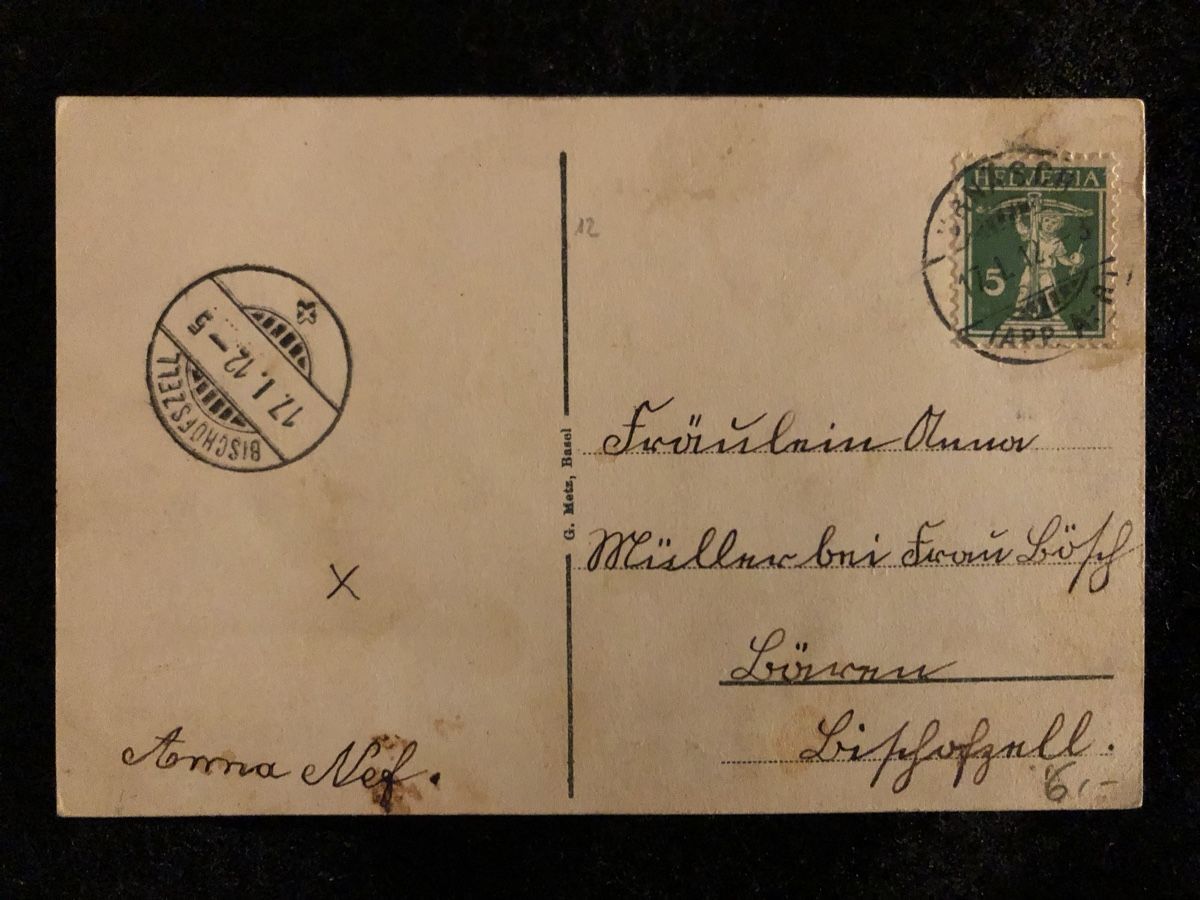 12
HELVETIA
5
URNÄSCH
17.I.12
(APP. A.RH.)
BISCHOFSZELL
17.I.12–5
G. Metz, Basel
Fräulein Anna
Müller bei Frau Bösch
Bären
Bischofzell.
X
Anna Nef.
6,–